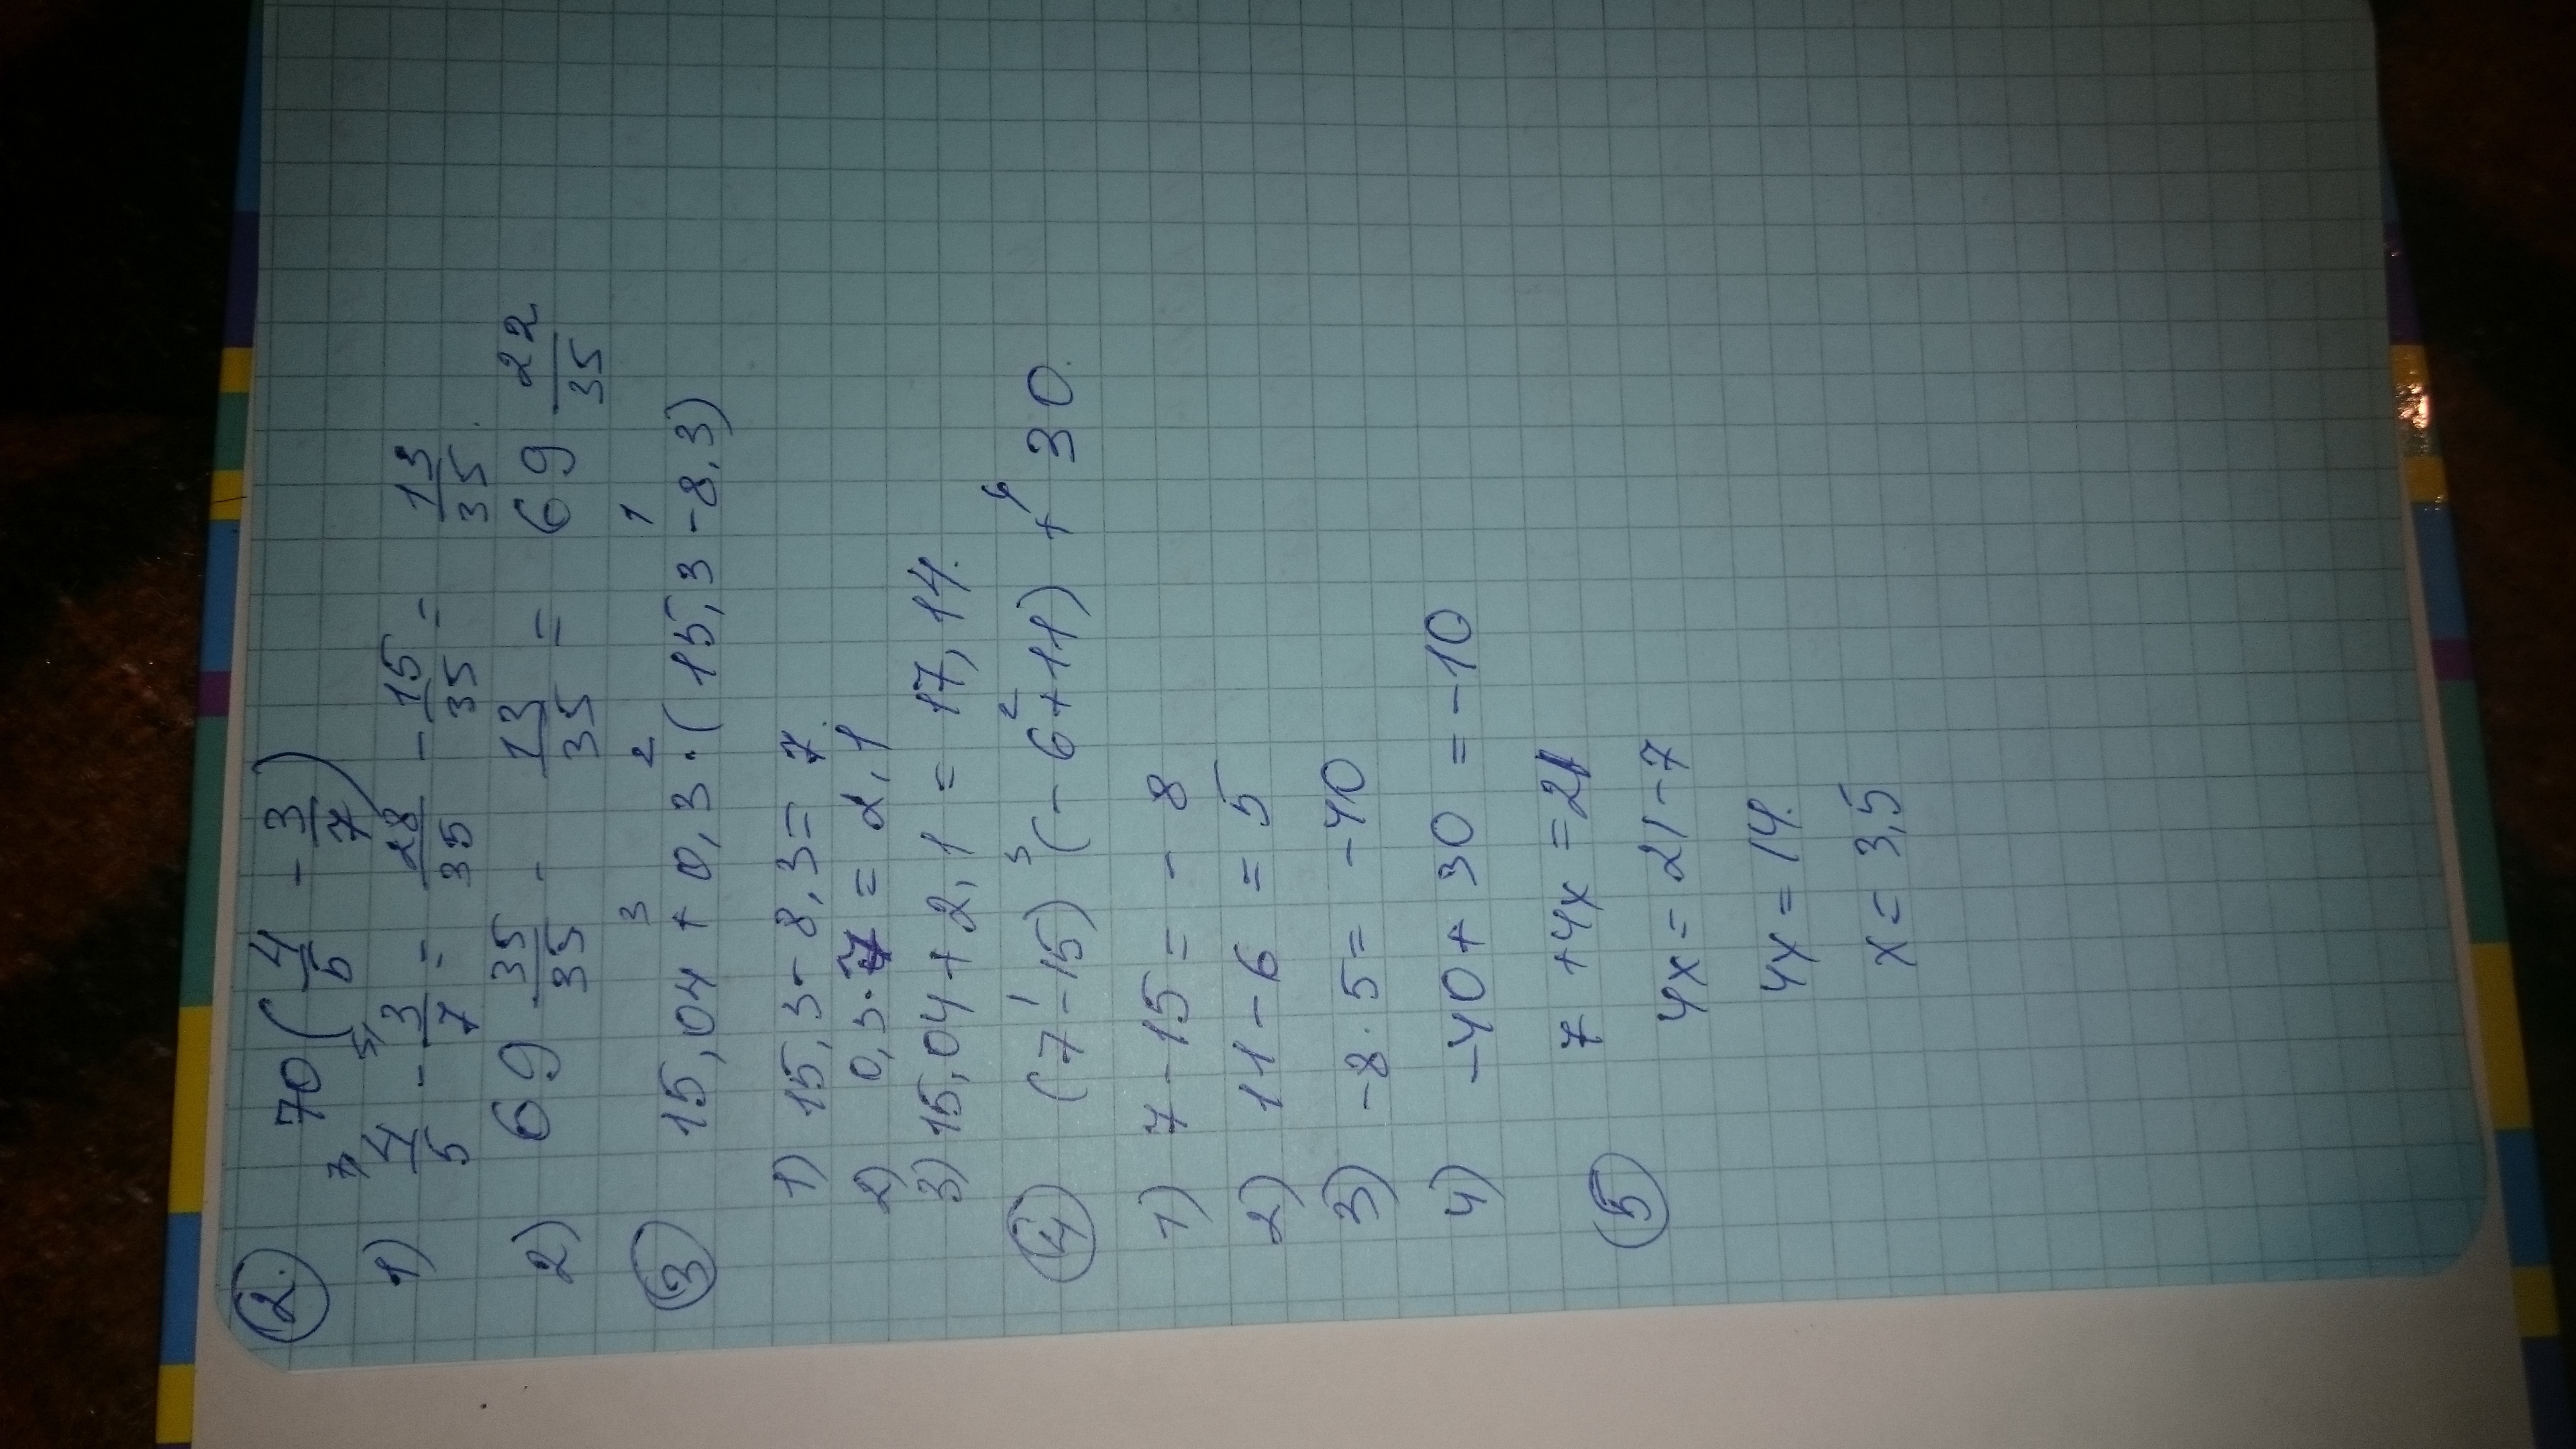 2. 70 (4/5 - 3/7)
1) 4/5 - 3/7 = 28/35 - 15/35 = 13/35.
2) 69 35/35 - 13/35 = 69 22/35
3 15,04 + 0,3 · (15,3 - 8,3)
1) 15,3 - 8,3 = 7.
2) 0,3 · 7 = 2,1
3) 15,04 + 2,1 = 17,14.
4 (7 - 15) (- 6 + 11) + 30.
1) 7 - 15 = - 8
2) 11 - 6 = 5
3) -8 · 5 = -40
4) -40 + 30 = -10
5 7 + 4x = 21
4x = 21 - 7
4x = 14.
x = 3,5